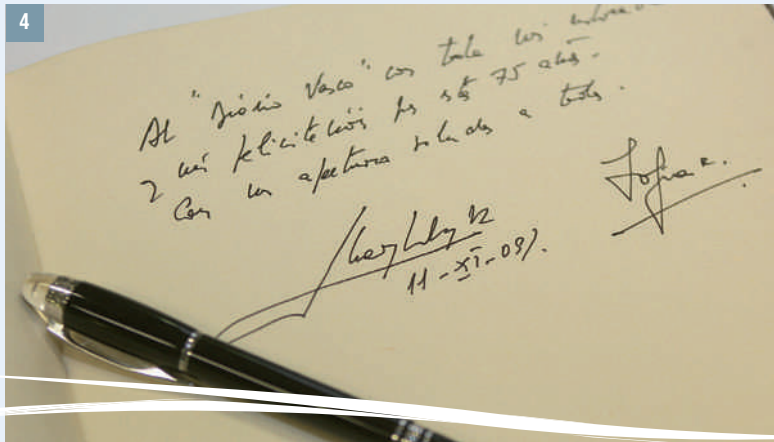 4
Al "Diario Vasco" con todo mi
y mi felicitación por estos 75 años.
Con un afectuoso saludo a todos.
Sofía R.
Juan Carlos R
11-XI-09